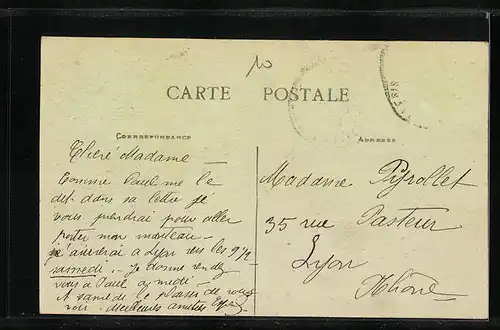 10
CARTE POSTALE
CORRESPONDANCE
ADRESSE
Cheré Madame —
Comme Paul me le
dit dans sa lettre je
vous prendrai pour aller
porter mon manteau —
j'arriverai à Lyon vers les 9h½
samedi. Je donne rendez
vous à Paul a midi —
A samedi le plaisir de vous
voir. meilleures amitiés
Madame Peyrollet
35 rue Pasteur
Lyon
Rhône